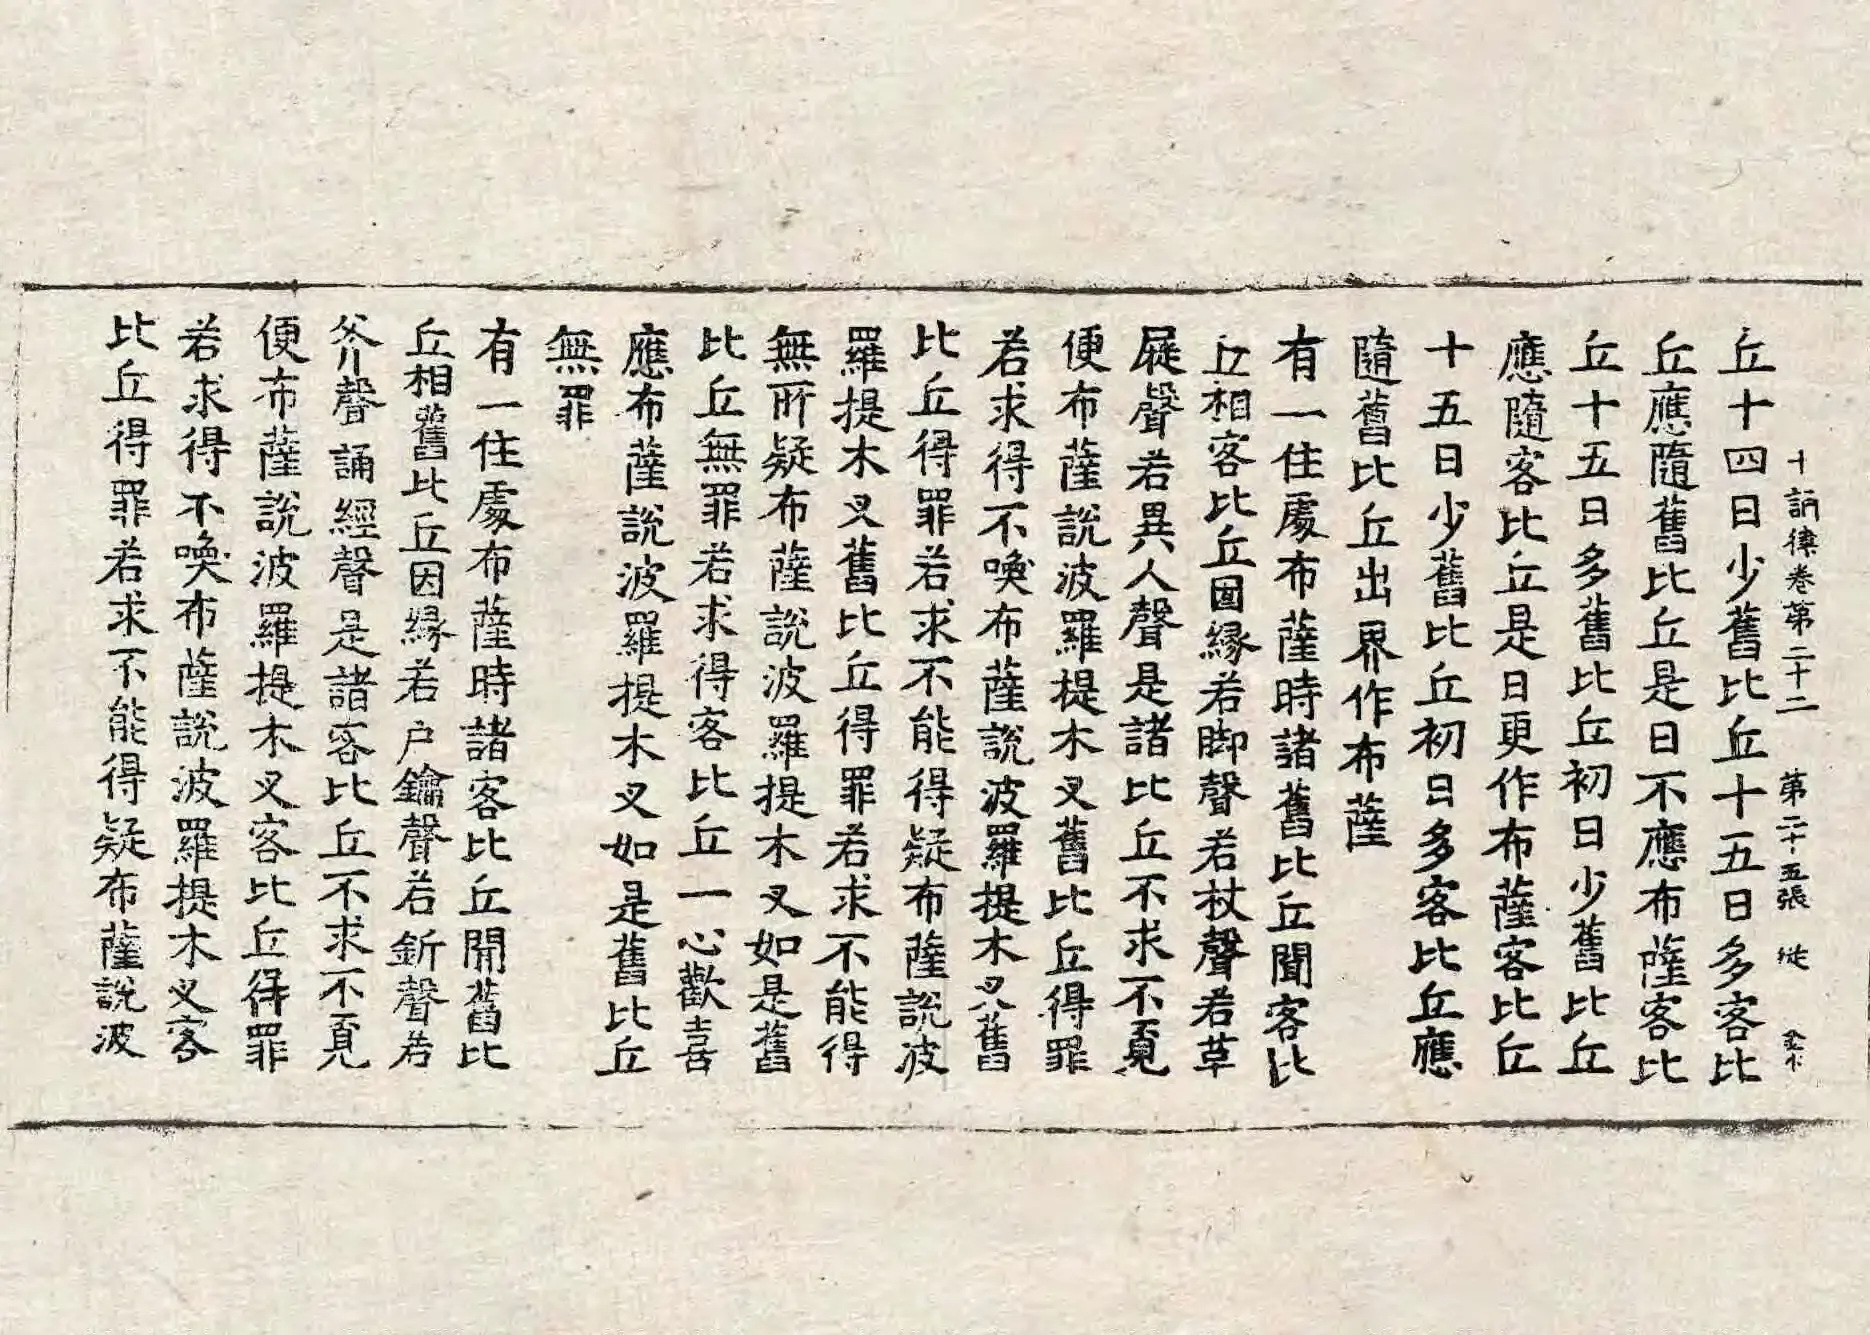 十誦律卷第二十二 第二十五張
丘十四日少舊比丘十五日多客比
丘應隨舊比丘是日不應布薩客比
丘十五日多舊比丘初日少舊比丘
應隨客比丘是日更作布薩客比丘
十五日少舊比丘初日多客比丘應
隨舊比丘出界作布薩
有一住處布薩時諸舊比丘聞客比
丘相客比丘因緣若脚聲若杖聲若草
屣聲若異人聲是諸比丘不求不覓
便布薩說波羅提木叉舊比丘得罪
若求得不喚布薩說波羅提木叉舊
比丘得罪若求不能得疑布薩說波
羅提木叉舊比丘得罪若求不能得
無所疑布薩說波羅提木叉如是舊
比丘無罪若求得客比丘一心歡喜
應布薩說波羅提木叉如是舊比丘
無罪
有一住處布薩時諸客比丘聞舊比
丘相舊比丘因緣若户鑰聲若斤聲若
斧聲誦經聲是諸客比丘不求不覓
便布薩說波羅提木叉客比丘得罪
若求得不喚布薩說波羅提木叉客
比丘得罪若求不能得疑布薩說波